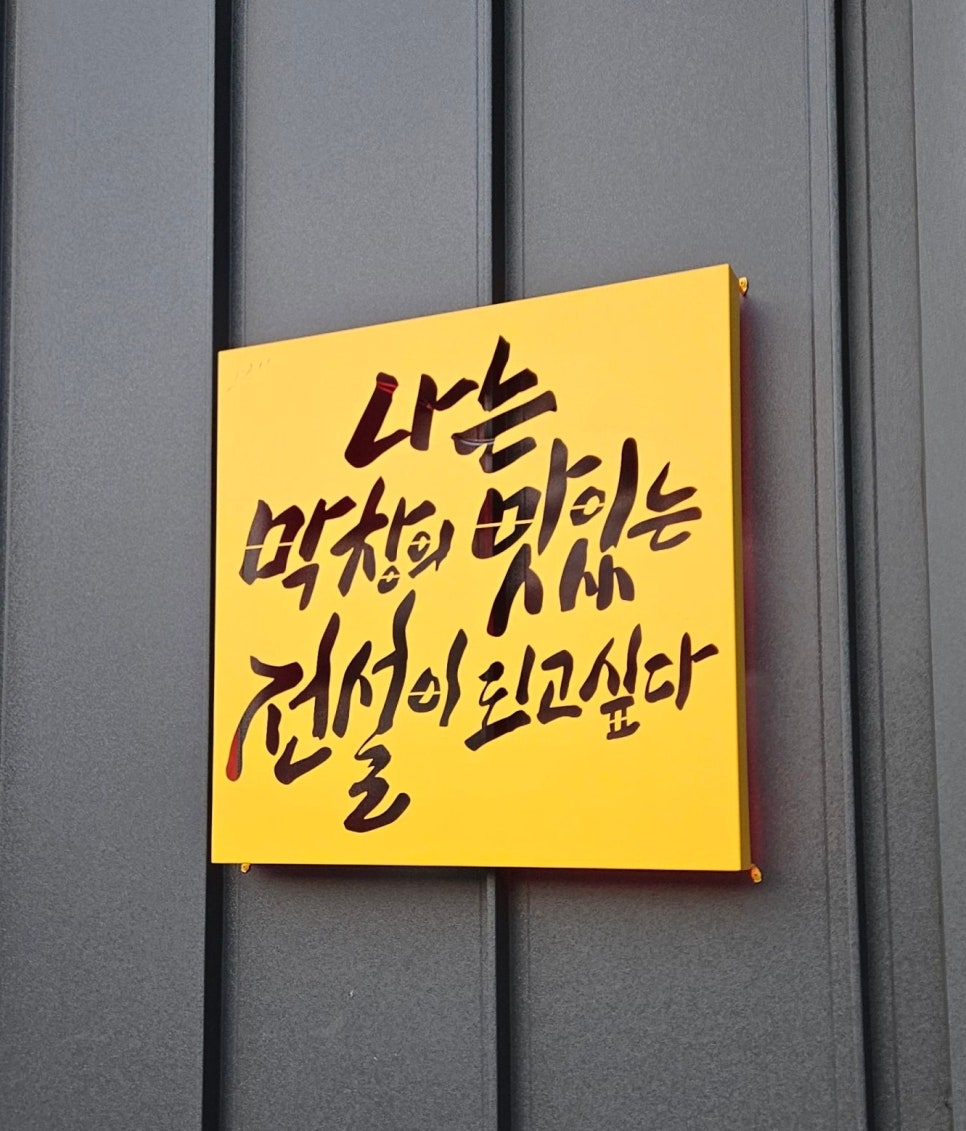 나는
막창의 맛있는
전설이 되고싶다